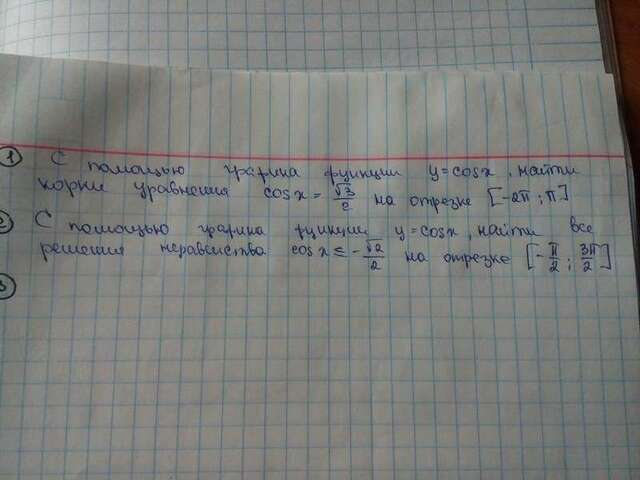 1 С помощью графика функции y=cosx, найти
корни уравнения cosx = √3/2 на отрезке [-2π; π]
2 С помощью графика функции y=cosx, найти все
решения неравенства cosx ≤ -√2/2 на отрезке [-π/2; 3π/2]
3